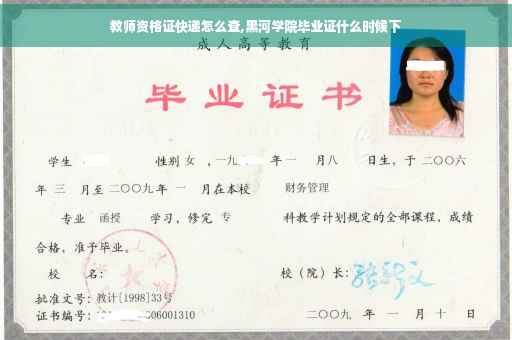 教师资格证快递怎么查,黑河学院毕业证什么时候下
成人高等教育
毕业证书
学生 性别 女 ，一九 年一 月八 日生，于二〇〇六
年 三 月至二〇〇九年 一 月在本校 财务管理
专业 函授 学习，修完 专 科教学计划规定的全部课程，成绩
合格，准予毕业。
校 名： 校（院）长：
批准文号：教计[1998]33号
证书编号： 06001310 二〇〇九 年 一 月 十 日